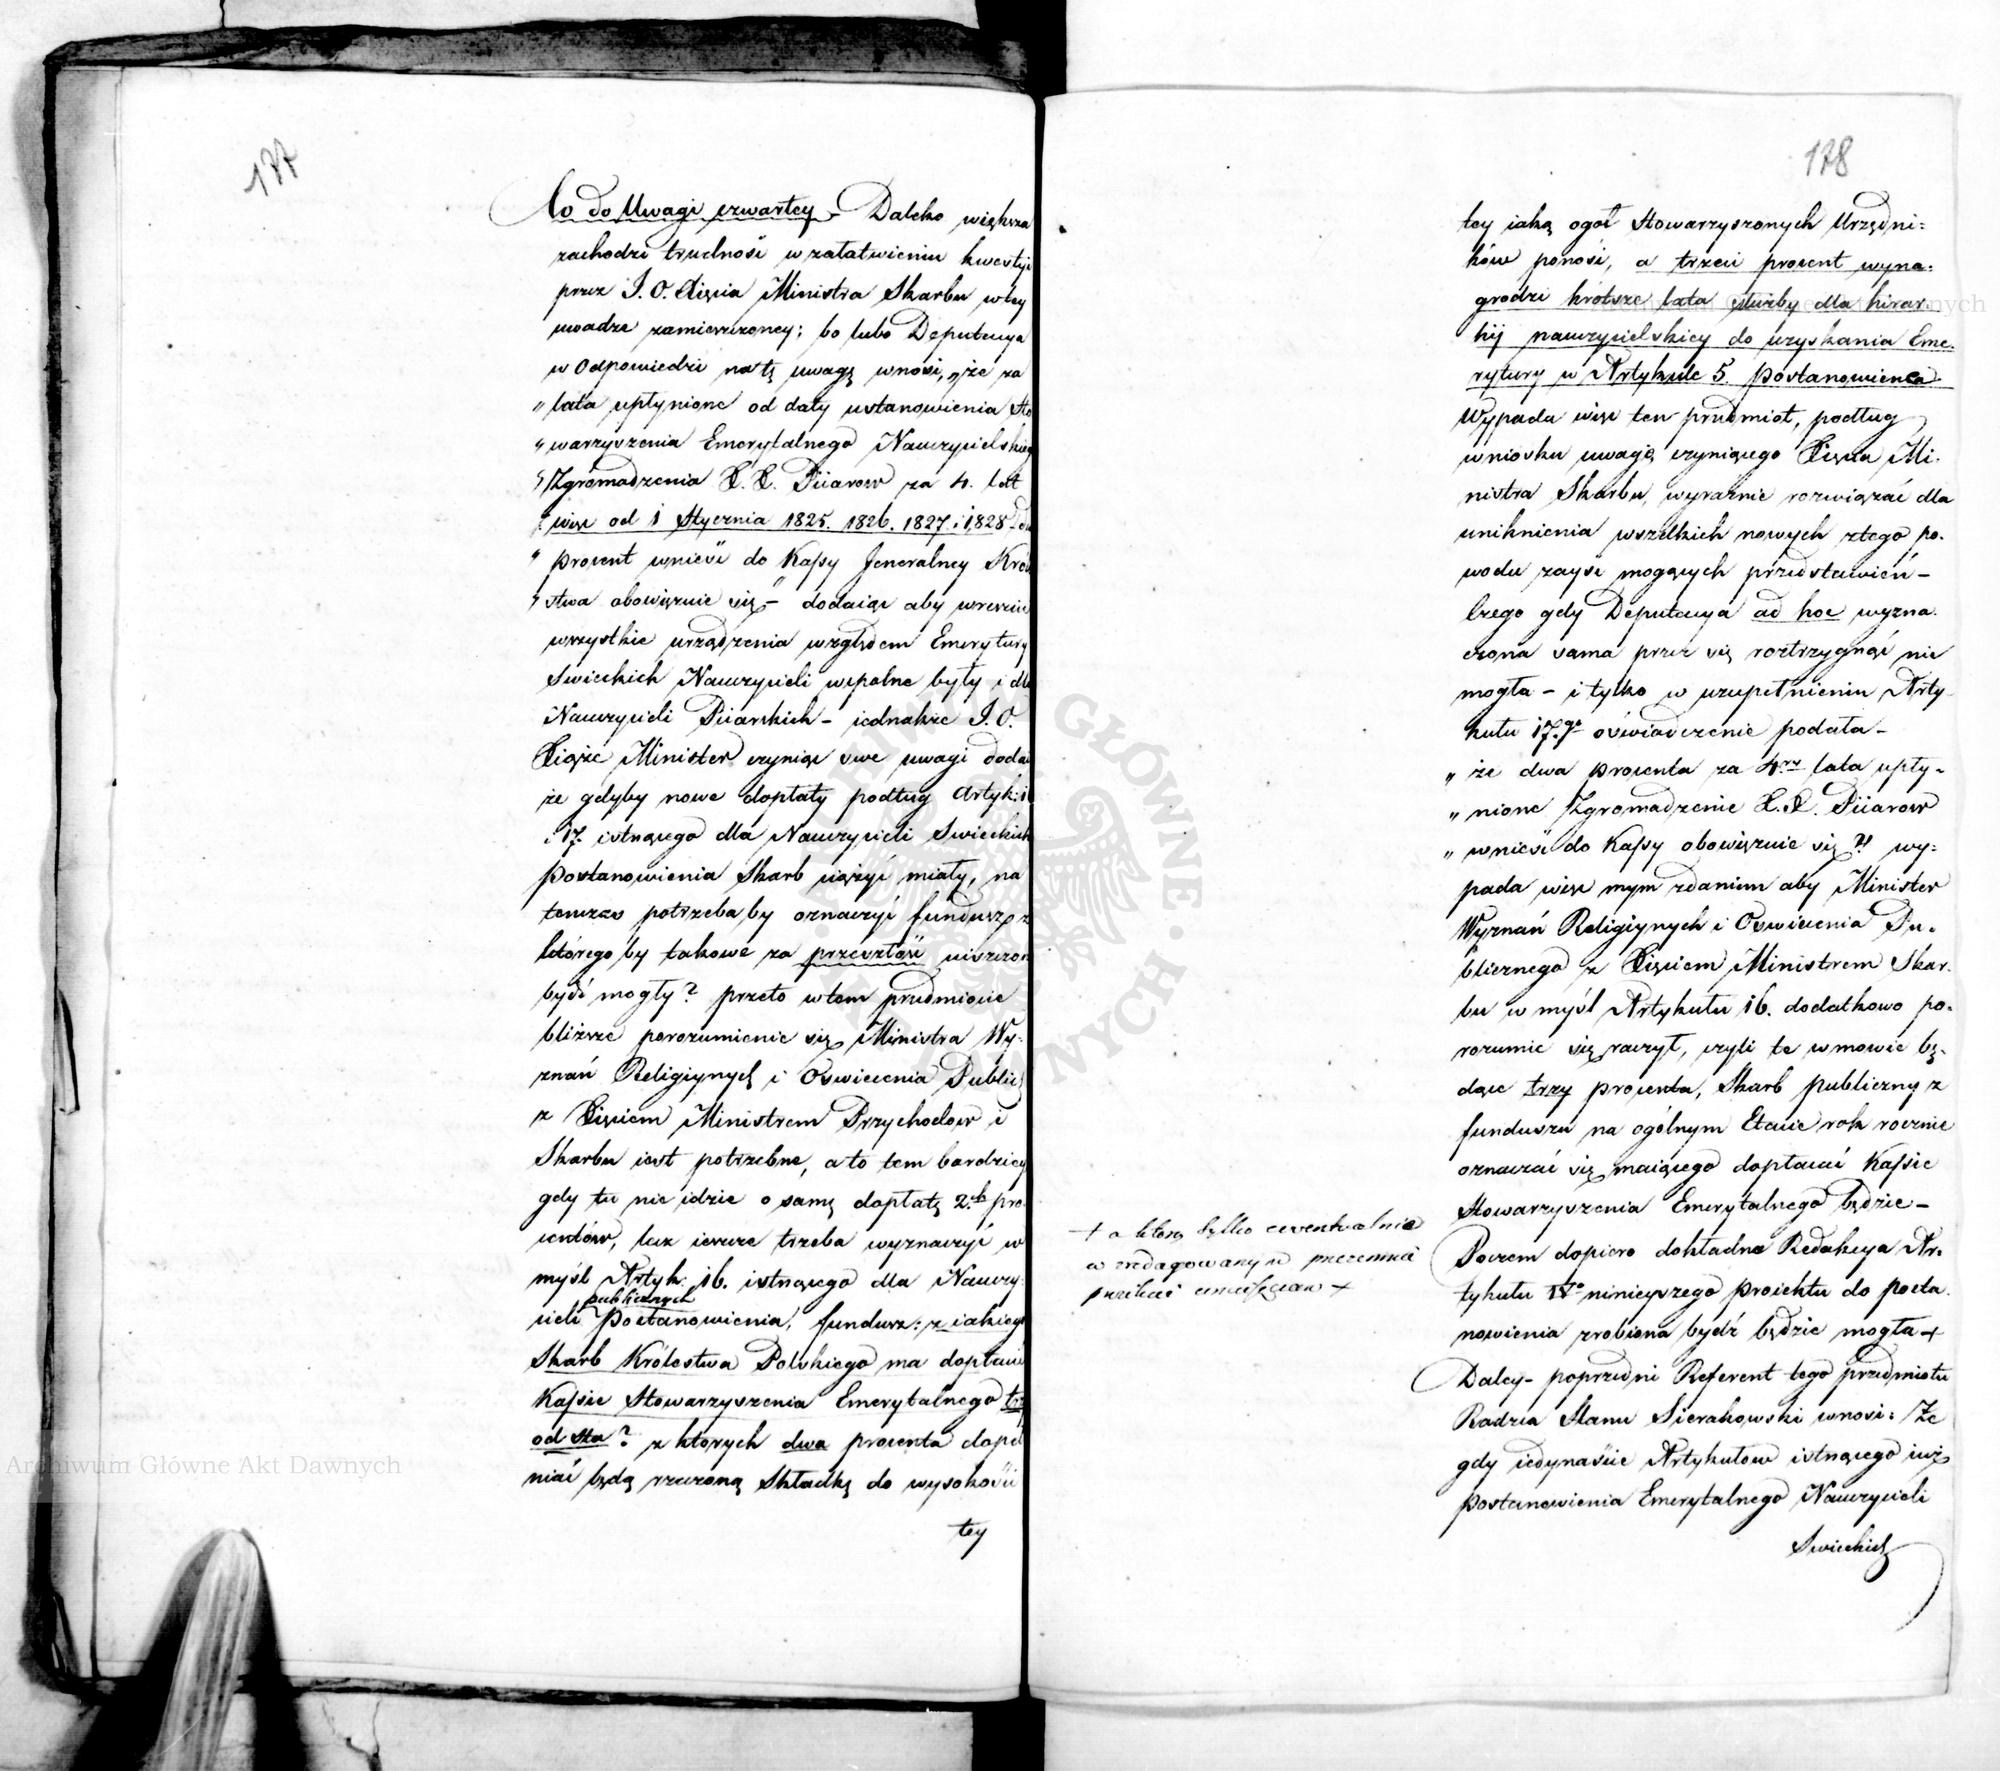 177
Co do Uwagi czwartey. Daleko większa
zachodzi trudność w załatwieniu kwestyi
przez J. O. Xięcia Ministra Skarbu w tey
uwadze zamieszczoney; bo lubo Deputacya
w Odpowiedzi na tę uwagę wnosi, „że za
„ lata upłynione od daty ustanowienia Sto
„ warzyszenia Emerytalnego Nauczycielskieg
„ Zgromadzenia X. X. Piiarow za 4. lat
„ więc od 1 Stycznia 1825. 1826. 1827. i 1828 dwa
„ procent wnieść do Kassy Jeneralney Kró
„ stwa obowiązuie się" – dodaiąc aby wreszcie
wszystkie urządzenia względem Emerytury
Swieckich Nauczycieli wspolne były i dla
Nauczycieli Piiarskich – iednakże J. O.
Xiąże Minister czyniąc swe uwagi dodał
że gdyby nowe dopłaty podług Artyk: 16
i 17. istnącego dla Nauczycieli Swieckich
Postanowienia Skarb ciążyć miały, na
tenczas potrzeba by oznaczyć fundusz z
którego by takowe za przeszłość uiszczon
bydź mogły? przeto w tem przedmiocie
bliższe porozumienie się Ministra Wy-
znań Religiynych i Oswiecenia Public
z Xięciem Ministrem Przychodow i
Skarbu iest potrzebne, a to tem bardziey
gdy tu nie idzie o samę dopłatę 2.ch pro
centów, lecz ieszcze trzeba wyznaczyć w
myśl Artyk: 16. istnącego dla Nauczy
publicznych
cieli Postanowienia, fundusz: z iakiego
Skarb Królestwa Polskiego ma dopłacić
Kassie Stowarzyszenia Emerytalnego trzy
od sta? z których dwa procenta dopeł
niać będą rzeczoną Składkę do wysokości
tey
178
tey iaką ogoł Stowarzyszonych Urzędni-
ków ponosi, a trzeci procent wyna-
grodzi krótsze lata służby dla hirar
hij nauczycielskiey do uzyskania Eme-
rytury w Artykule 5. Postanowienia
Wypada więc ten przedmiot, podług
wniosku uwagę czyniącego Xięcia Mi-
nistra Skarbu, wyraźnie rozwiązać dla
uniknienia wszelkich nowych z tego po-
wodu zayść mogących przedstawień –
Czego gdy Deputacya ad hoc wyzna-
czona sama przez się roztrzygnąć nie
mogła – i tylko w uzupełnieniu Arty-
kułu 17.go oświadczenie podała –
„ że dwa procenta za 4ry lata upły-
„ nione Zgromadzenie X. X. Piiarow
„ wnieść do Kassy obowiązuie się" wy-
pada więc mym zdaniem aby Minister
Wyznań Religiynych i Oswiecenia Pu-
blicznego z Xięciem Ministrem Skar-
bu w myśl Artykułu 16. dodatkowo po-
rozumie się raczył, czyli te w mowie bę-
dące trzy procenta, Skarb publiczny z
funduszu na ogólnym Etacie rok rocznie
oznaczać się maiącego dopłacać Kassie
Stowarzyszenia Emerytalnego będzie –
Poczem dopiero dokładna Redakcya Ar-
tykułu ninieyszego Proiektu do posta
nowienia zrobiona bydź będzie mogła +
+ a którą tylko ewentualnie
w zredagowanym przezemnie
Daley – poprzedni Referent tego przedmiotu
Radca Stanu Sierakowski wnosi: Że
gdy iedynaście Artykułow istnącego iuż
Postanowienia Emerytalnego Nauczycieli
Swieckich
Archiwum Główne Akt Dawnych